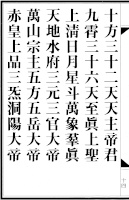 十方三十二天天主帝君
九霄三十六天至眞上聖
上清日月星斗萬象羣眞
天地水府三元三官大帝
萬山宗主五方五岳大帝
赤皇上品三炁洞陽大帝